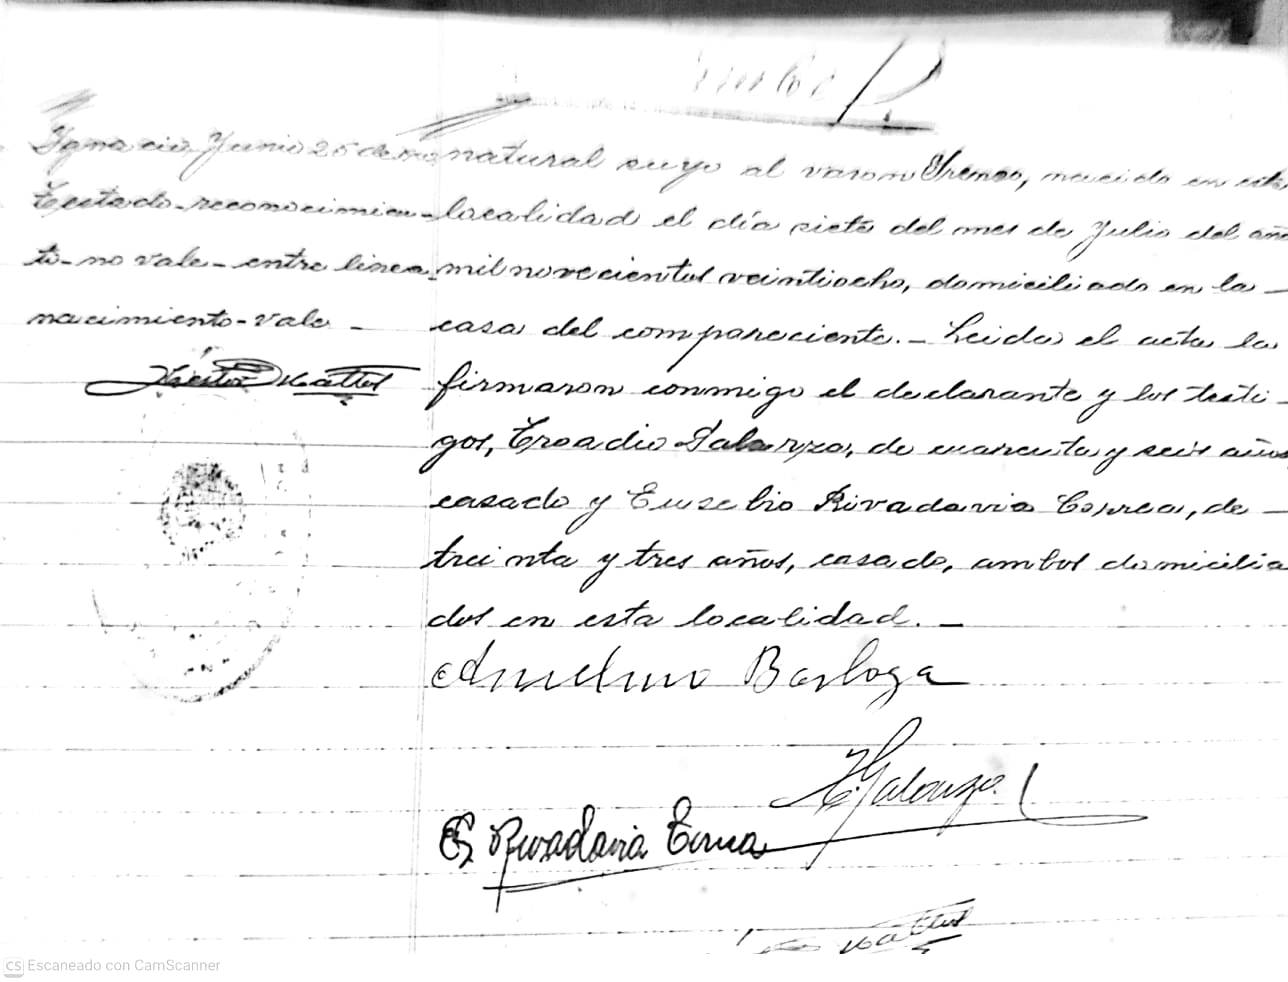 Ygnacio, Junio 25 de
Testado-reconocimien-
to-no vale-entre linea-
nacimiento-vale-
Néstor Mattos
natural suyo al varon, nacido en esta
localidad el día siete del mes de Julio del año
mil novecientos veintiocho, domiciliado en la -
casa del compareciente.- Leida el acta la
firmaron conmigo el declarante y los testi-
gos, Troadio Galarza, de cuarenta y seis años
casado y Eusebio Rivadavia Correa, de -
treinta y tres años, casado, ambos domicilia
dos en esta localidad. -
Anselmo Barloza
T. Galarza
E. Rivadavia Correa
Mattos
CS Escaneado con CamScanner